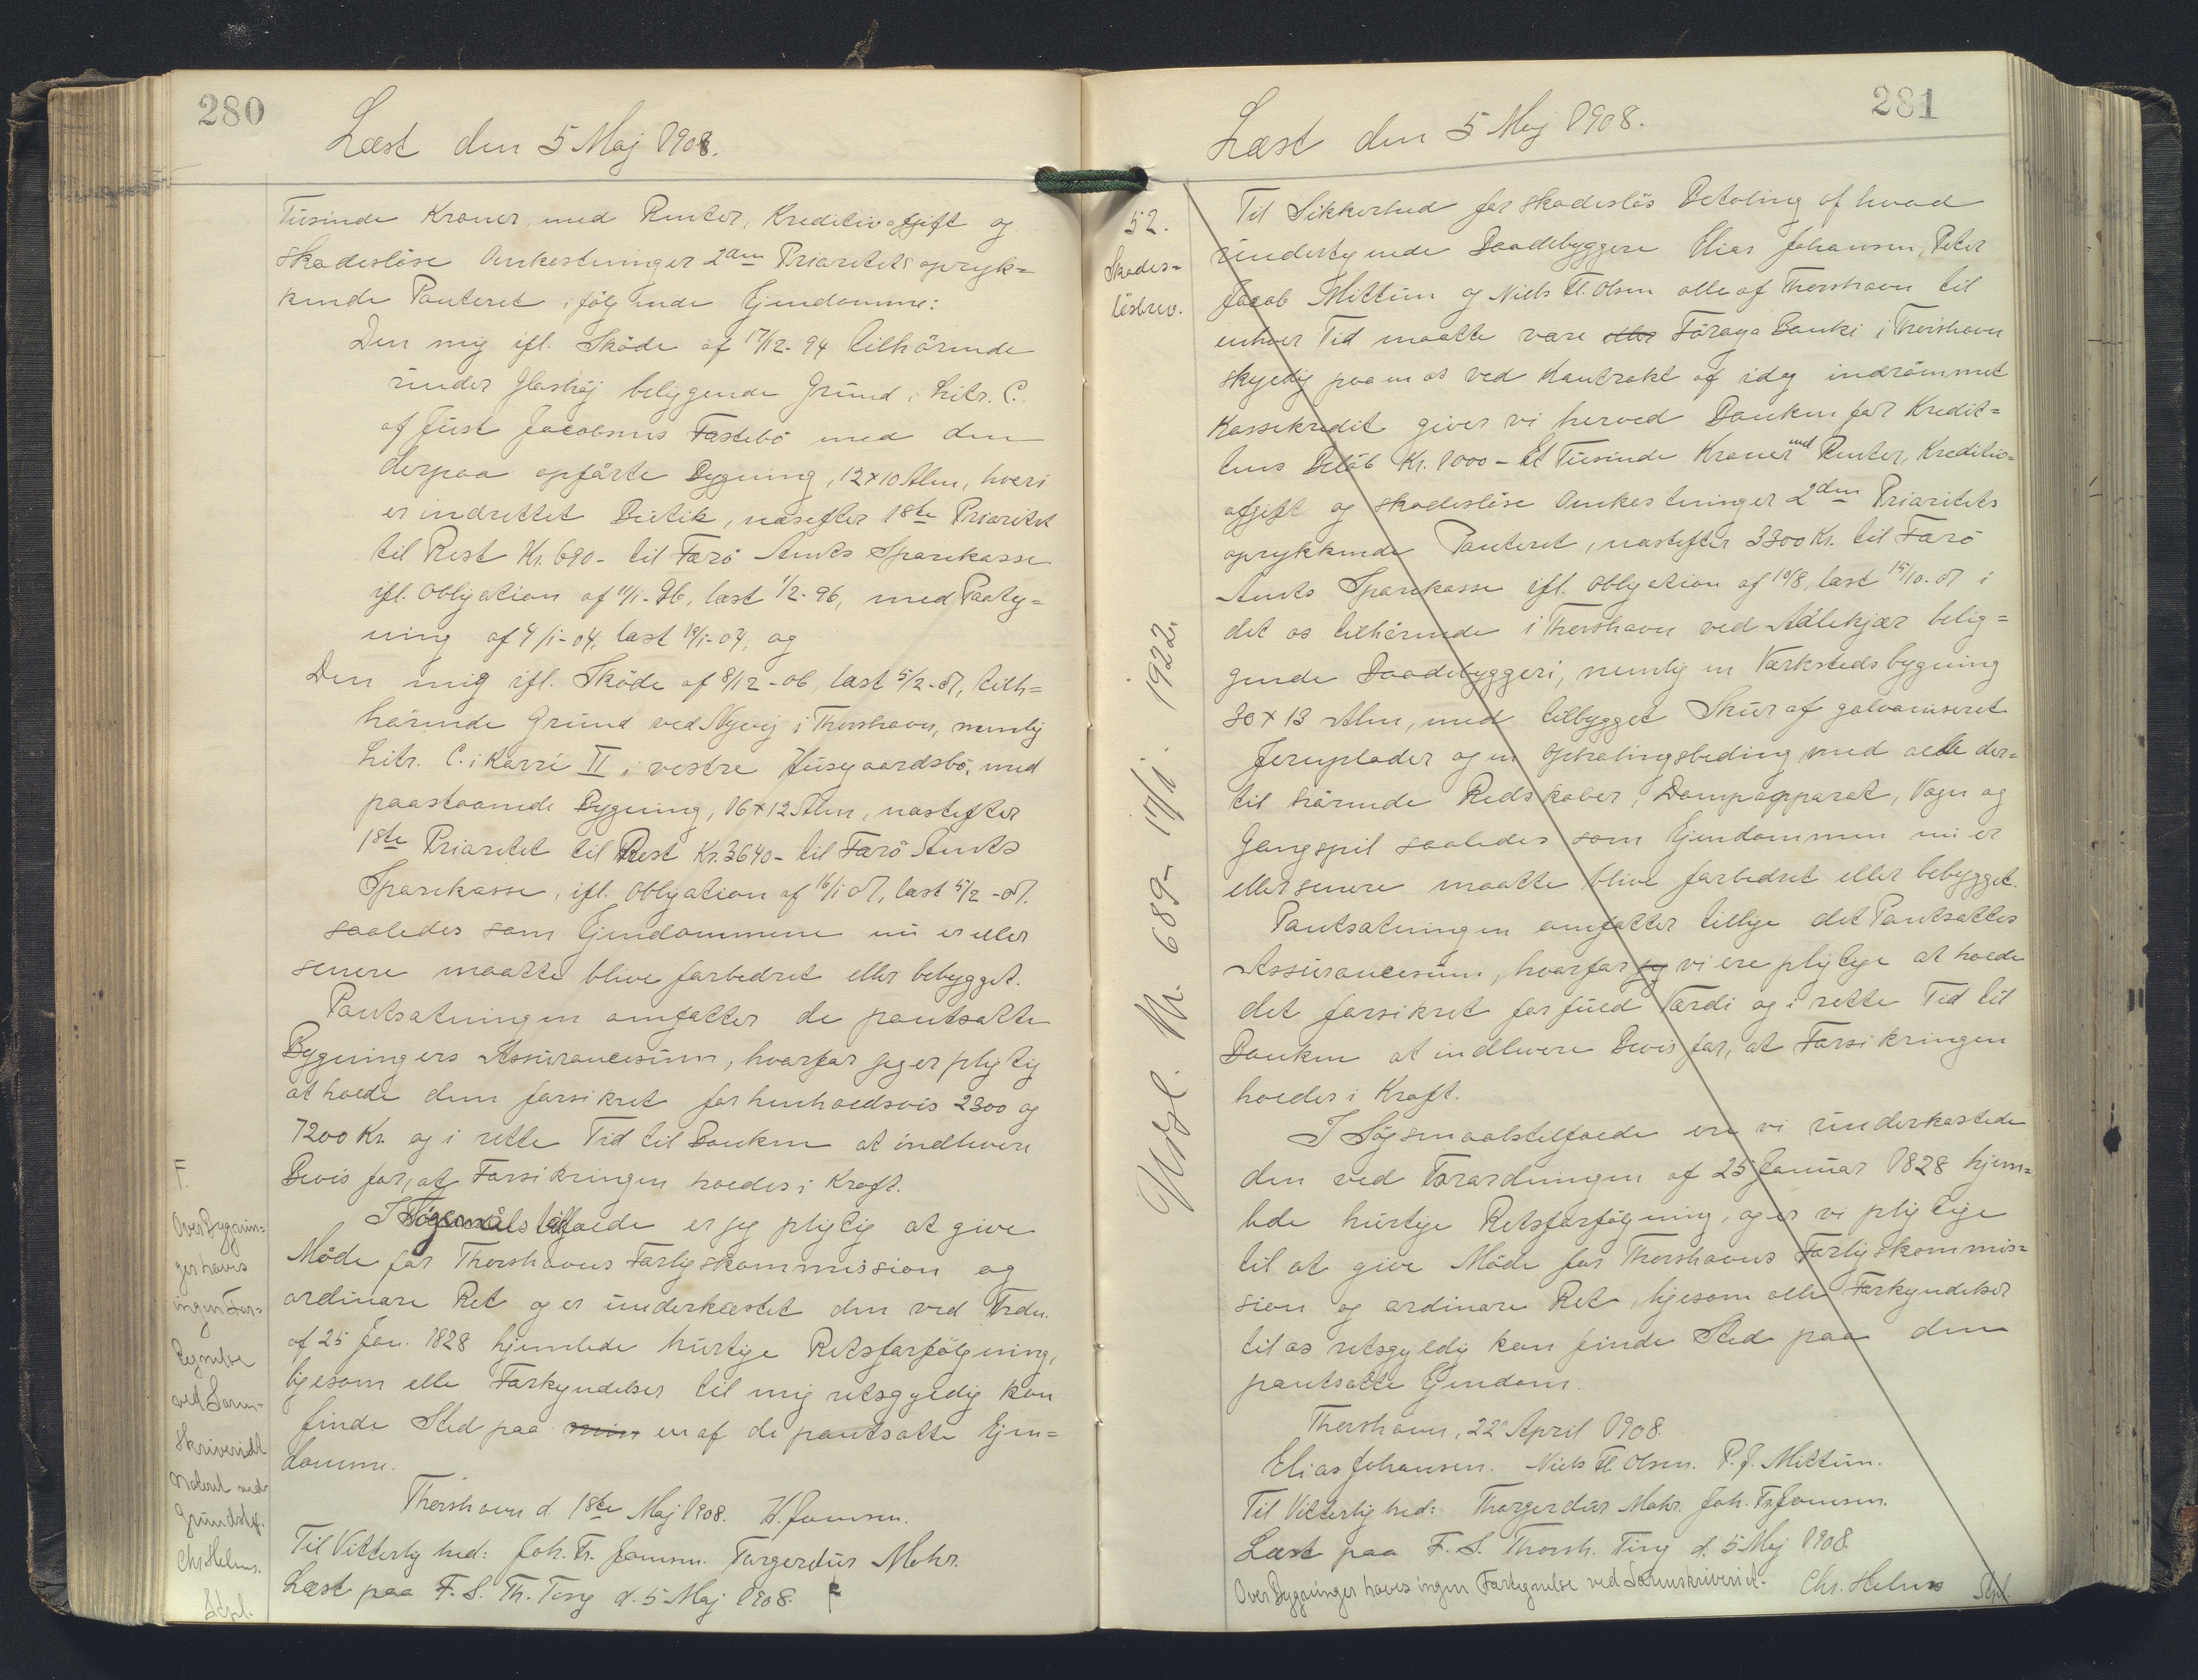 280
Læst den 5 Maj 1908.
Tusinde Kroner, med Renter, Kreditivafgift og
skadesløse Omkostninger 2den Prioritets opryk=
kende Panteret i følgende Ejendomme:
Den mig ifl. Skøde af 17/12-94 tilhørende
under Glashøj beliggende Grund, Litr. C.
af Just Jacobsens Fæstebø med den
derpaa opførte Bygning, 12x10 Alen, hvori
er indrettet Butik, næstefter 1ste Prioritet
til Rest Kr. 690- til Færø Amts Sparekasse
ifl. Obligation af 11/1-96, læst 1/2-96, med Paateg=
ning af 4/1-04, læst 19/1-04, og
Den mig ifl. Skøde af 8/12-06, læst 5/2-07, tilh=
hørende Grund ved Nyvej i Thorshavn, nemlig
Litr. C. i Karré II i vestre Husgaardsbø, med
paastaaende Bygning, 16x12 Alen, næstefter
1ste Prioritet til Rest Kr. 3640- til Færø Amts
Sparekasse, ifl. Obligation af 16/1 07, læst 5/2-07.
saaledes som Ejendommene nu er eller
senere maatte blive forbedret eller bebygget.
Pantsætningen omfatter de pantsatte
Bygningers Assurancesum, hvorfor jeg er pligtig
at holde dem forsikret for henholdsvis 2300 og
7200 Kr. og i rette Tid til Banken at indlevere
Bevis for, at Forsikringen holdes i Kraft.
I Søgsmålstilfælde er jeg pligtig at give
Møde for Thorshavns Forligskommission og
ordinære Ret og er underkastet den ved Frdn.
af 25 Jan. 1828 hjemlede hurtige Retsforfølgning,
ligesom alle Forkyndelser til mig retsgyldig kan
finde Sted paa min en af de pantsatte Ejen=
domme.
Thorshavn d. 1ste Maj 1908. H. Joensen.
Til Vitterlighed: Joh. Fr. Joensen. Turgerdur Mohr.
Læst paa F. S. Th. Ting d. 5 Maj 1908. F
F.
Over Bygnin=
ger haves
ingen For=
tegnelse
ved Soren=
skriveriet
Noteret ved
Grundstk.
Chr. Helms.
Scpl.
281
Læst den 5 Maj 1908.
52.
Skades=
løsbrev.
Udsl. N. 689- 17/1. 1922.
Til Sikkerhed for skadesløs Betaling af hvad
undertegnede Baadebyggere Elias Johansen, Peter
Jacob Mittún og Niels Fl. Olsen alle af Thorshavn til
enhver Tid maatte være Föroya Banki i Thorshavn
skyldig paa en os ved Kontrakt af idag indrømmet
Kassekredit giver vi herved Banken for Kredit=
tens Beløb Kr. 1000- Et Tusinde Kroner med Renter, Kreditiv=
afgift og skadesløse Omkostninger 2den Prioritets
oprykkende Panteret, næstefter 3300 Kr. til Færø
Amts Sparekasse ifl. Obligation af 10/8, læst 15/10-07 i
det os tilhørende i Thorshavn ved Aalekjær belig=
gende Baadebyggeri, nemlig en Værkstedsbygning
30x13 Alen, med tilbygget Skur af galvaniseret
Jernplader og en Ophalingsbeding med alle der=
til hørende Redskaber, Dampapparat, Vogn og
Gangspil saaledes som Ejendommen nu er
eller senere maatte blive forbedret eller bebygget.
Pantsætningen omfatter tillige det Pantsattes
Assurancesum, hvorfor jeg vi ere pligtige at holde
det forsikret for fuld Værdi og i rette Tid til
Banken at indlevere Bevis for, at Forsikringen
holdes i Kraft.
I Søgsmaalstilfælde ere vi underkastede
den ved Forordningen af 25 Januar 1828 hjem=
lede hurtige Retsforfølgning, og er vi pligtige
til at give Møde for Thorshavns Forligskommis=
sion og ordinære Ret, ligesom alle Forkyndelser
til os retsgyldig kan finde Sted paa den
pantsatte Ejendom.
Thorshavn, 22 April 1908.
Elias Johansen. Niels Fl Olsen. P. J. Mittún.
Til Vitterlighed: Thorgerdur Mohr. Joh. Fr. Joensen.
Læst paa F. S. Thorsh. Ting d. 5 Maj 1908.
Over Bygninger haves ingen Fortegnelse ved Sorenskriveriet. Chr. Helms Scpl.